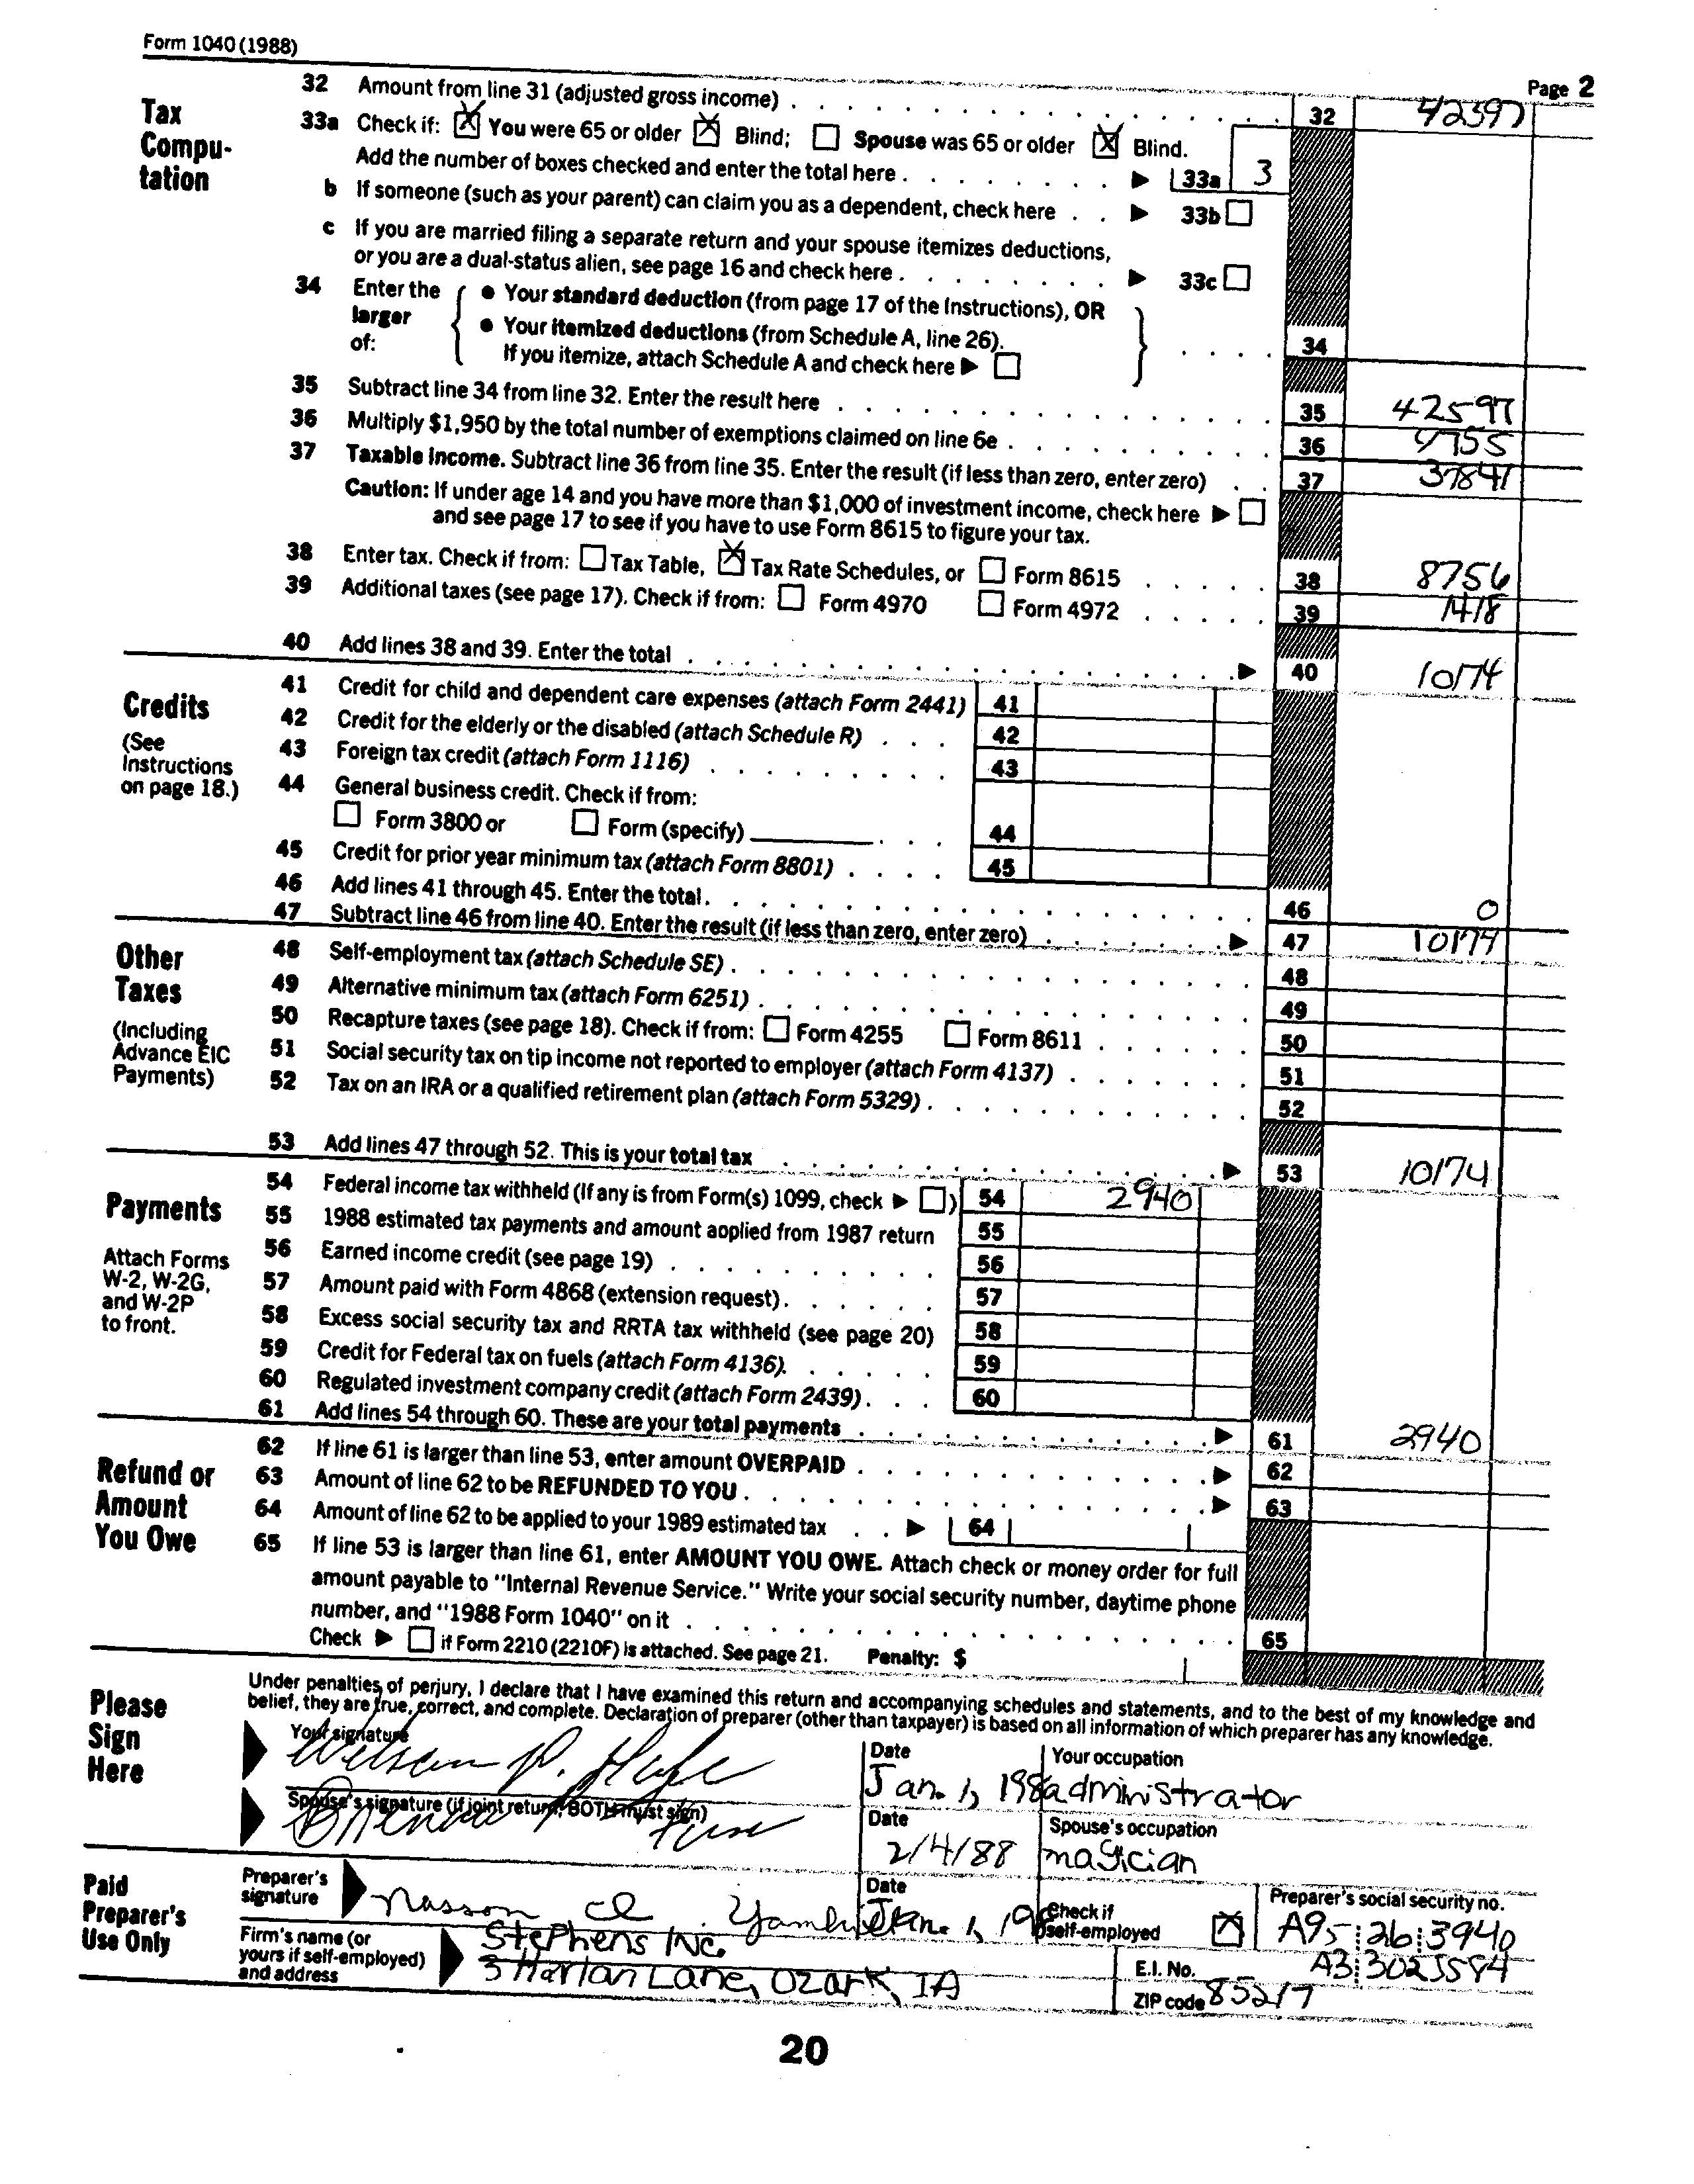 Form 1040 (1988)
Page 2
Tax Compu-tation
32 Amount from line 31 (adjusted gross income) 32 42597
33a Check if: X You were 65 or older X Blind; Spouse was 65 or older X Blind.
Add the number of boxes checked and enter the total here 33a 3
b If someone (such as your parent) can claim you as a dependent, check here 33b
c If you are married filing a separate return and your spouse itemizes deductions,
or you are a dual-status alien, see page 16 and check here 33c
34 Enter the larger of: • Your standard deduction (from page 17 of the Instructions), OR
• Your itemized deductions (from Schedule A, line 26).
If you itemize, attach Schedule A and check here 34
35 Subtract line 34 from line 32. Enter the result here 35 42597
36 Multiply $1,950 by the total number of exemptions claimed on line 6e 36 4755
37 Taxable income. Subtract line 36 from line 35. Enter the result (if less than zero, enter zero) 37 37841
Caution: If under age 14 and you have more than $1,000 of investment income, check here
and see page 17 to see if you have to use Form 8615 to figure your tax.
38 Enter tax. Check if from: Tax Table, X Tax Rate Schedules, or Form 8615 38 8756
39 Additional taxes (see page 17). Check if from: Form 4970 Form 4972 39 1418
40 Add lines 38 and 39. Enter the total 40 10174
Credits
(See Instructions on page 18.)
41 Credit for child and dependent care expenses (attach Form 2441) 41
42 Credit for the elderly or the disabled (attach Schedule R) 42
43 Foreign tax credit (attach Form 1116) 43
44 General business credit. Check if from:
Form 3800 or Form (specify) 44
45 Credit for prior year minimum tax (attach Form 8801) 45
46 Add lines 41 through 45. Enter the total. 46 0
47 Subtract line 46 from line 40. Enter the result (if less than zero, enter zero) 47 10174
Other Taxes
(Including Advance EIC Payments)
48 Self-employment tax (attach Schedule SE) 48
49 Alternative minimum tax (attach Form 6251) 49
50 Recapture taxes (see page 18). Check if from: Form 4255 Form 8611 50
51 Social security tax on tip income not reported to employer (attach Form 4137) 51
52 Tax on an IRA or a qualified retirement plan (attach Form 5329) 52
53 Add lines 47 through 52. This is your total tax 53 10174
Payments
Attach Forms W-2, W-2G, and W-2P to front.
54 Federal income tax withheld (If any is from Form(s) 1099, check ) 54 2940
55 1988 estimated tax payments and amount applied from 1987 return 55
56 Earned income credit (see page 19) 56
57 Amount paid with Form 4868 (extension request) 57
58 Excess social security tax and RRTA tax withheld (see page 20) 58
59 Credit for Federal tax on fuels (attach Form 4136) 59
60 Regulated investment company credit (attach Form 2439) 60
61 Add lines 54 through 60. These are your total payments 61 2940
Refund or Amount You Owe
62 If line 61 is larger than line 53, enter amount OVERPAID 62
63 Amount of line 62 to be REFUNDED TO YOU 63
64 Amount of line 62 to be applied to your 1989 estimated tax 64
65 If line 53 is larger than line 61, enter AMOUNT YOU OWE. Attach check or money order for full
amount payable to "Internal Revenue Service." Write your social security number, daytime phone
number, and "1988 Form 1040" on it 65
Check if Form 2210 (2210F) is attached. See page 21. Penalty: $
Please Sign Here
Under penalties of perjury, I declare that I have examined this return and accompanying schedules and statements, and to the best of my knowledge and
belief, they are true, correct, and complete. Declaration of preparer (other than taxpayer) is based on all information of which preparer has any knowledge.
Your signature Date Your occupation
Jan. 1, 198 administrator
Spouse's signature (if joint return, BOTH must sign) Date Spouse's occupation
2/4/88 magician
Paid Preparer's Use Only
Preparer's signature Nasson Date Jan. 1, 19 Check if self-employed X Preparer's social security no. A95 26 3940
Firm's name (or yours if self-employed) and address Stephens Inc. E.I. No. A3 3023584
3 Harlan Lane, Ozark, IA ZIP code 85217
20